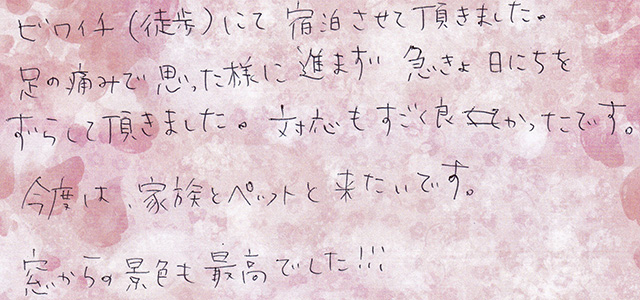 ビワイチ(徒歩)にて 宿泊させて頂きました。
足の痛みで思った様に進まず 急きょ日にちを
ずらして頂きました。対応もすごく良かったです。
今度は、家族とペットと来たいです。
窓からの景色も最高でした!!!